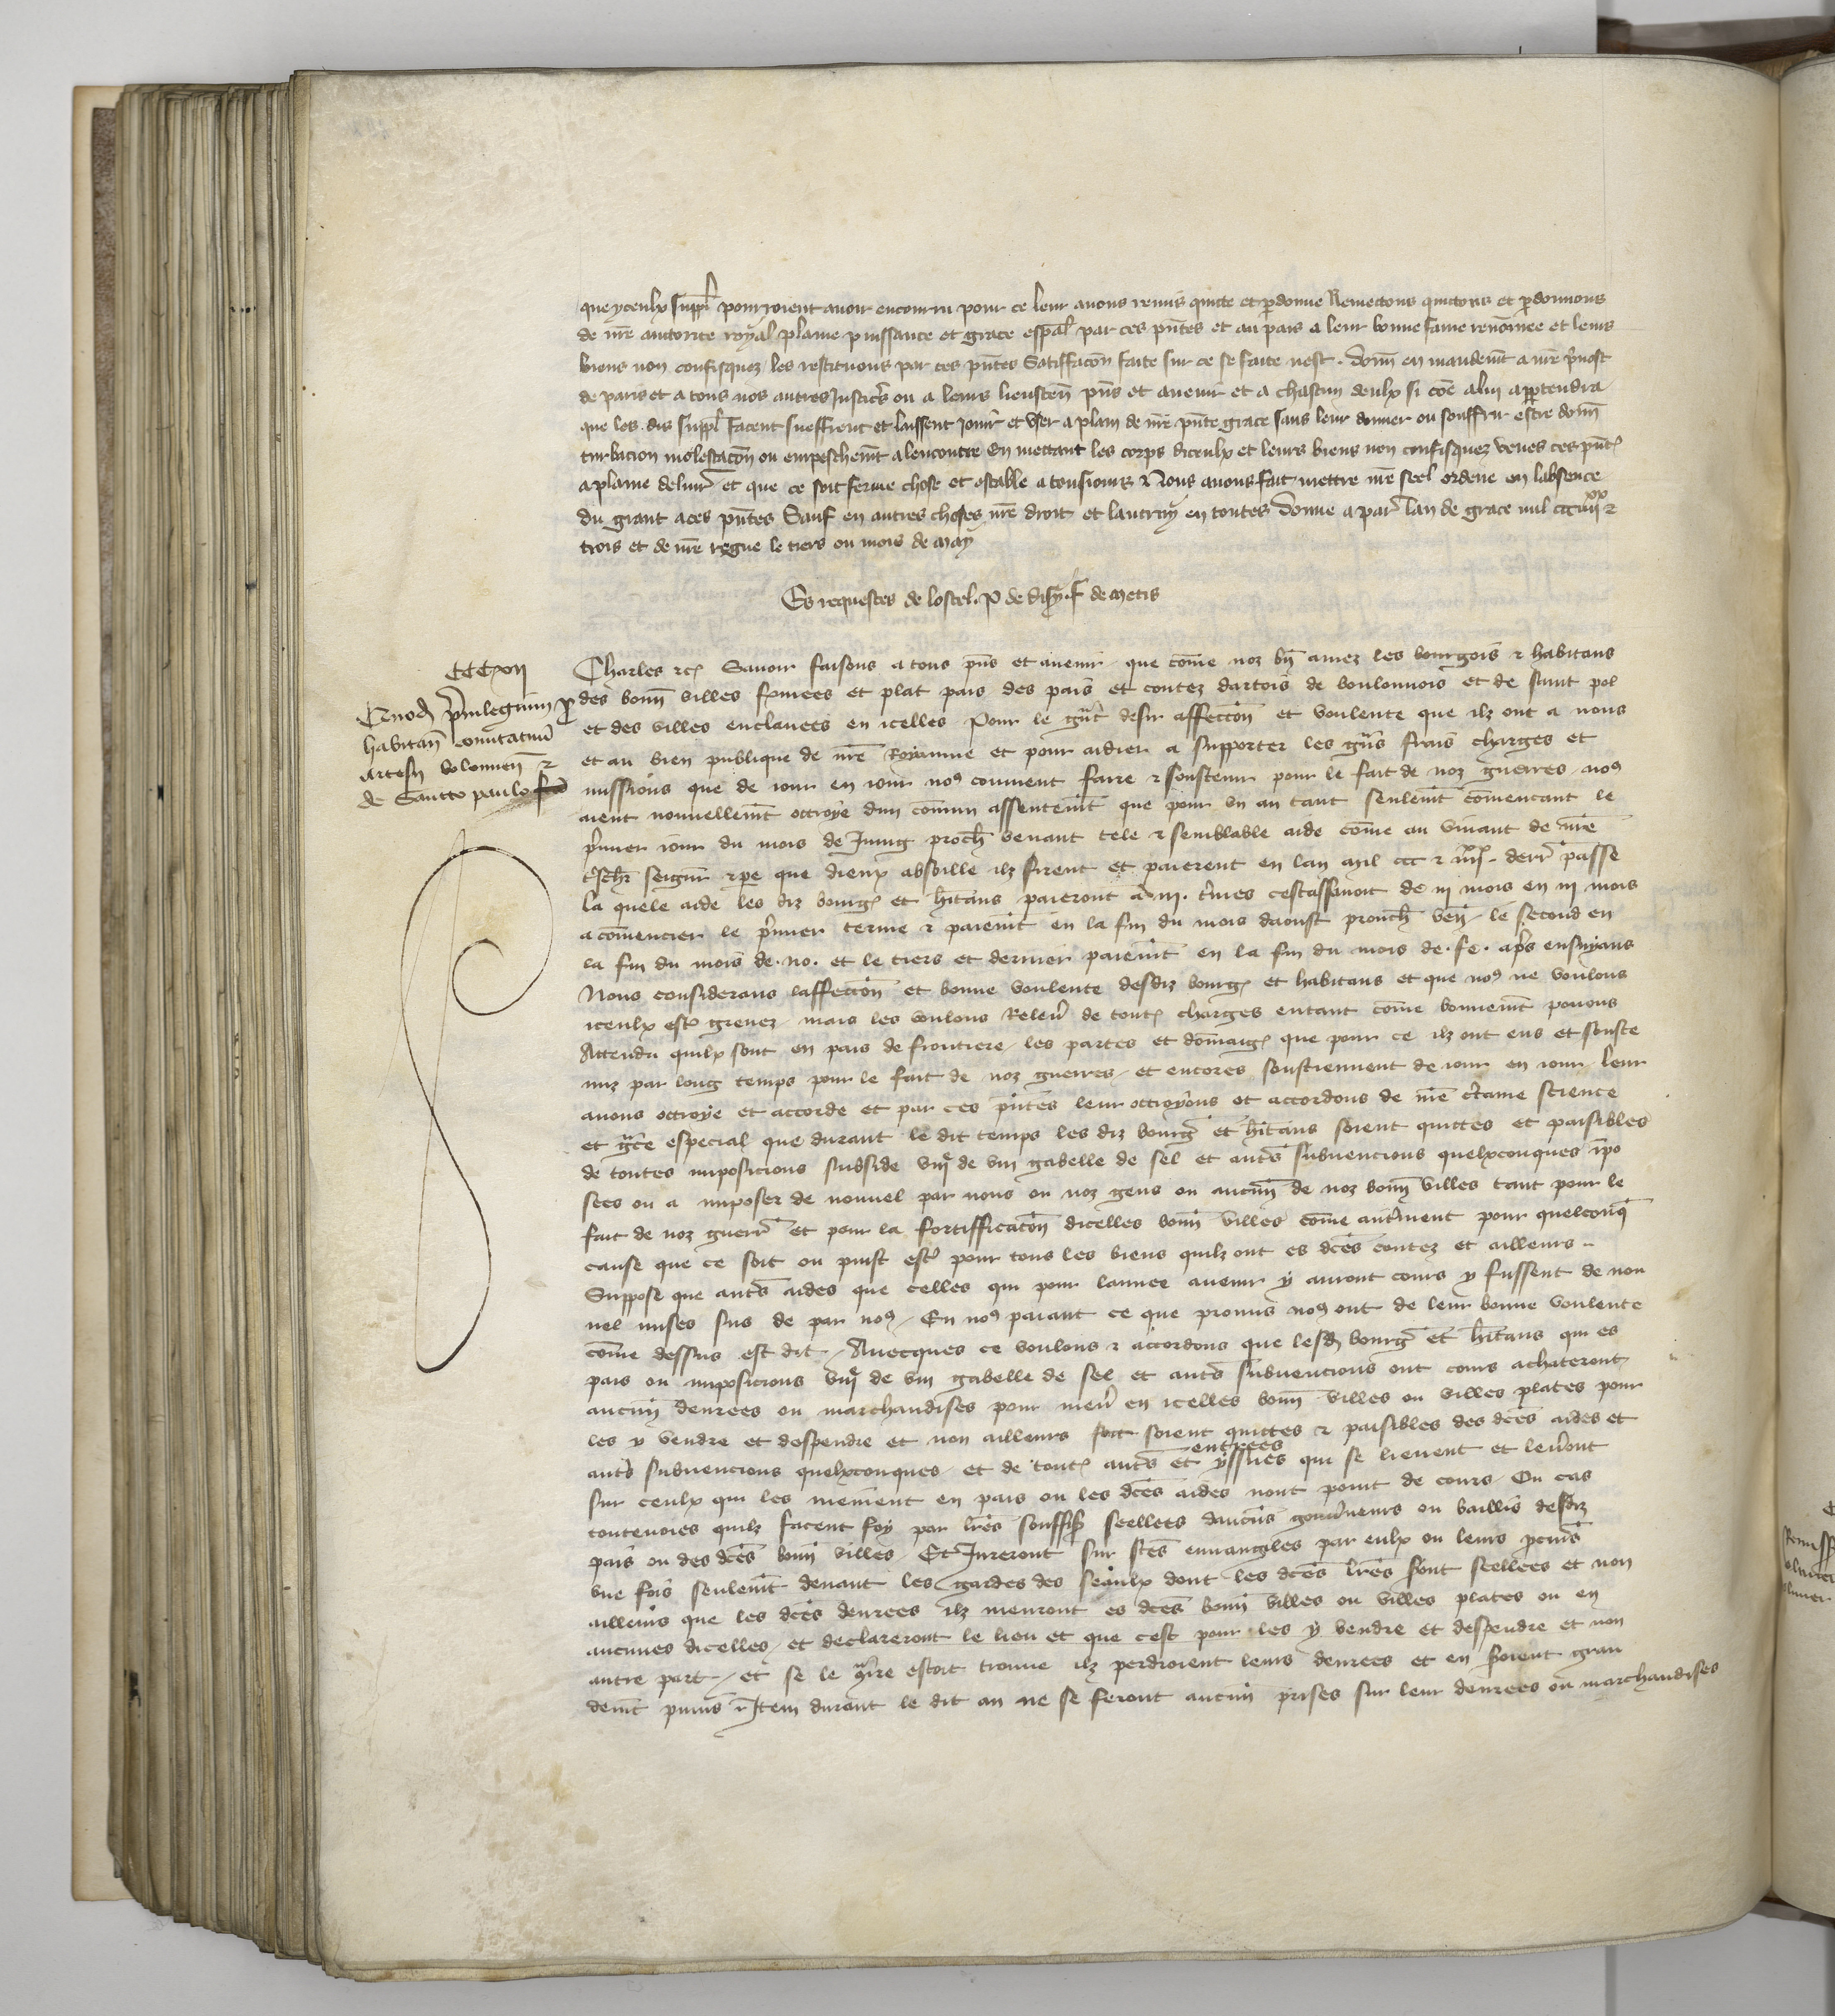 que yceulx suppl pourroient avoir encouru pour ce leur avons remis quicte et pdonne Remectons quictons et pdonnons
de nre auctorite royal plaine puissance et grace espal par ces pntes et au pais a leur bonne fame renomee et leurs
biens non confisquez les restituons par ces pntes Satiffacon faite sur ce se faite nest . Donn en mandemt a nre pvost
de paris et a tous nos autres Justicrs ou a leurs lieuxten pns et avenir et a chascun deulx si coe a lui appertendra
que les dis suppl facent sueffrent et laissent jouir et user a plain de nre pnte grace sans leur donner ou souffrir estre donn
turbacion molestacon ou empeschemt alencontre En mettant les corps diceulx et leurs biens non confisquez venes ces pnt
a plaine delivr et que ce soit ferme chose et estable a tousjours Nous avons fait mettre nre seel ordene en labsence
du grant a ces pntes Sauf en autres choses nre droit et lautruy en toutes Donne a par lan de grace mil ccc iiii xx &
trois et de nre regne le tiers ou mois de May
Es requestes de lostel . P de disy . f de Metis
CCCxvii
Quod pvilegium p
habitan comitatuu
Artesii bolonien &
de Sancto paulo
Charles etc Savoir faisons a tous pns et avenir que come noz bn amez les bourgois & habitans
des bonn villes fermees et plat pais des pais et contez dartois de boulonnois et de saint pol
et des villes enclavees en icelles Pour le gnt desir affeccon et voulente que ilz ont a nous
et au bien publique de nre Royaume et pour aidier a supporter les gns frais charges et
missions que de jour en jour nos convient faire & soustenir pour le fait de noz guerres nos
aient nouvellemt ottroye dun comun assentemt que pour un an tant seulemt comencant le
pmier jour du mois de Juing proch venant tele & semblable aide come au vivant de nre
tschr seignr & pe que dieux absoille ilz firent et paierent en lan mil ccc & iiii xx . derr passe
la quele aide les diz bourg et hitans paieront a iii . tmes cestassavoir de iii mois en iii mois
a comencier le pmier terme & paiemt en la fin du mois daoust prouch ven le second en
la fin du mois de . no . et le tiers et dernier paiemt en la fin du mois de . fe . aps ensuyans
Nous considerans laffeccon et bonne voulente desdiz bourg et habitans et que nos ne voulons
iceulx estr grevez mais les voulons Relever de tout charges entant come bonnemt povons
Attendu quilx sont en pais de frontiere les pertes et domaig que pour ce ilz ont eus et souste
nuz par long temps pour le fait de noz guerres et encores soustiennent de jour en jour leur
avons ottroye et accorde et par ces pntes leur ottroyons et accordons de nre ctaine science
et gce especial que durant le dit temps les diz bourg et hitans soient quictes et paisibles
de toutes imposicions subside viiie de vin gabelle de sel et auts subvencions quelxconques ipo
sees ou a imposer de nouvel par nous ou noz gens ou aucun de noz bonn villes tant pour le
fait de noz guerr et pour la fortifficacon dicelles bonn villes come autrment pour quelconq
cause que ce soit ou puist estr pour tous les biens quilz ont es dces contez et ailleurs
Suppose que auts aides que celles qui pour lannee avenir y auront cours y fussent de nou
vel mises sus de par nos En nos paiant ce que promis nos ont de leur bonne voulente
come dessus est dit Avecques ce voulons & accordons que lesd bourg et hitans qui es
pais ou imposicions viiie de vin gabelle de sel et auts subvencions ont cours achateront
aucun denrees ou marchandises pour mener en icelles bonn villes ou villes plates pour
les y vendre et despendre et non ailleurs soient quictes & paisibles des dces aides et
auts subvencions quelxconques et de tout auts entrees et yssues qui se lievent et levront
sur ceulx qui les meinent en pais ou les dces aides nont point de cours Ou cas
toutevoies quilz facent foy par lres souffis scellees daucuns gouvneurs ou baillis desdiz
pais ou des dces bonn villes Et Jureront sur stes euvangiles par eulx ou leurs pcurs
une fois seulemt devant les gardes des seaulx dont les dces lres sont scellees et non
ailleurs que les dces denrees ilz menront es dces bonn villes ou villes plates ou en
aucunes dicelles et declareront le lieu et que cest pour les y vendre et despendre et non
autre part et se le gire estoit trouve ilz perdroient leurs denrees et en seroient gran
demt punis Item durant le dit an ne se feront aucun prises sur leur denrees ou marchandises